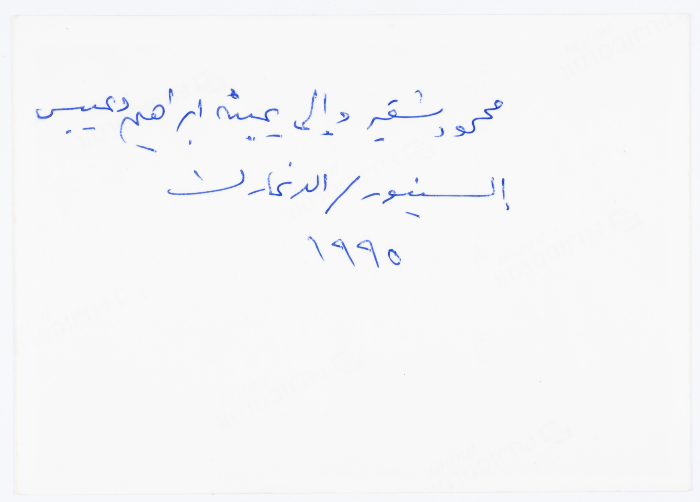 محمود شقير وإلى يمينه ابراهيم دعيبس
إلسينور / الدنمارك
١٩٩٥